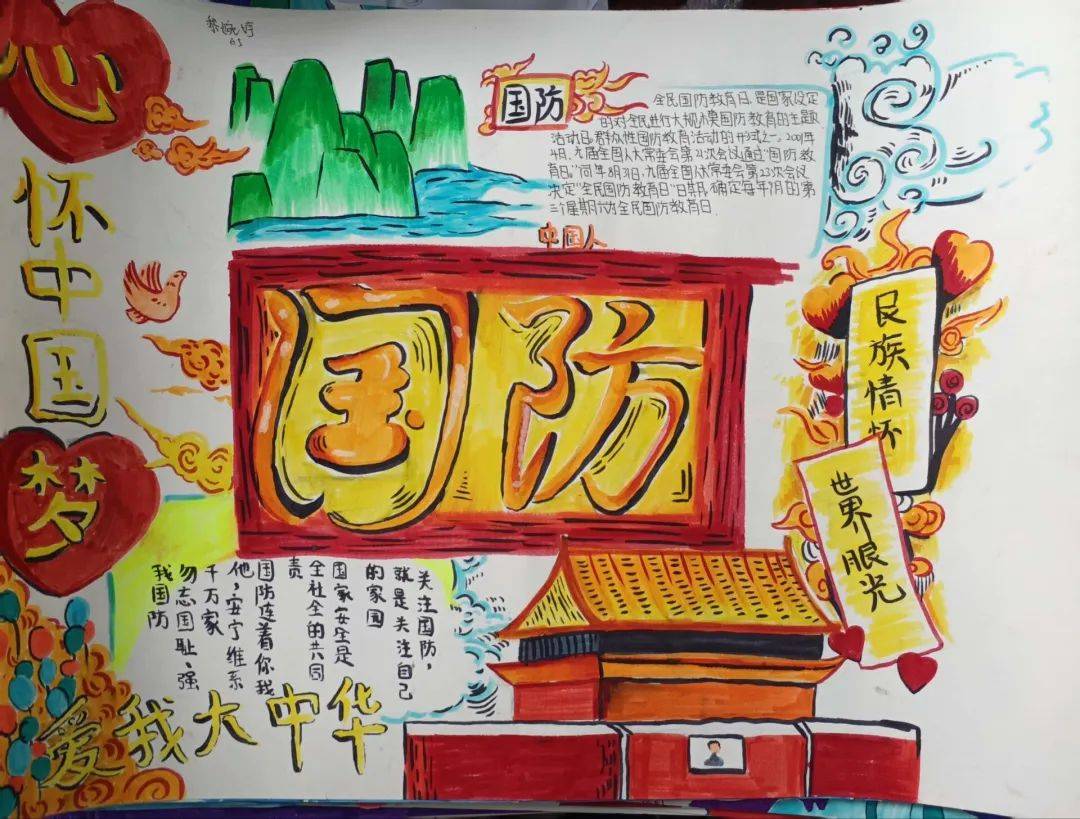 心怀中国梦
国防
全民国防教育日,是国家设定
的对全民进行大规模国防教育的主题
活动日。群众性国防教育活动的形式之一。2001年
4月,九届全国人大常委会第21次会议通过"国防教
育日。"同年8月31日,九届全国人大常委会第23次会议
决定"全民国防教育日"日期,确定每年9月的第
三个星期六为全民国防教育日.
中国人
国防
民族情怀
世界眼光
关注国防,
就是关注自己
的家园
国家安全是
全社会的共同
责
国防连着你我
他,安宁维系
千万家
勿忘国耻、强
我国防
爱我大中华